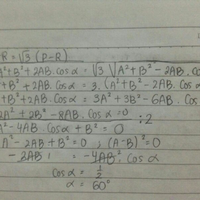 R = √3 (P-R)
A²+B²+2AB.cosα = √3 √A²+B²-2AB.co
+B²+2AB.cosα = 3.(A²+B²-2AB.Cos
+B²+2AB.cosα = 3A²+3B²-6AB.Cos
2A²+2B²-8AB.Cosα = 0 :2
²-4AB.Cosα+B² = 0
²-2AB+B²=0 ; (A-B)²=0
-2AB = -4AB cosα
cosα = 1/2
α = 60°